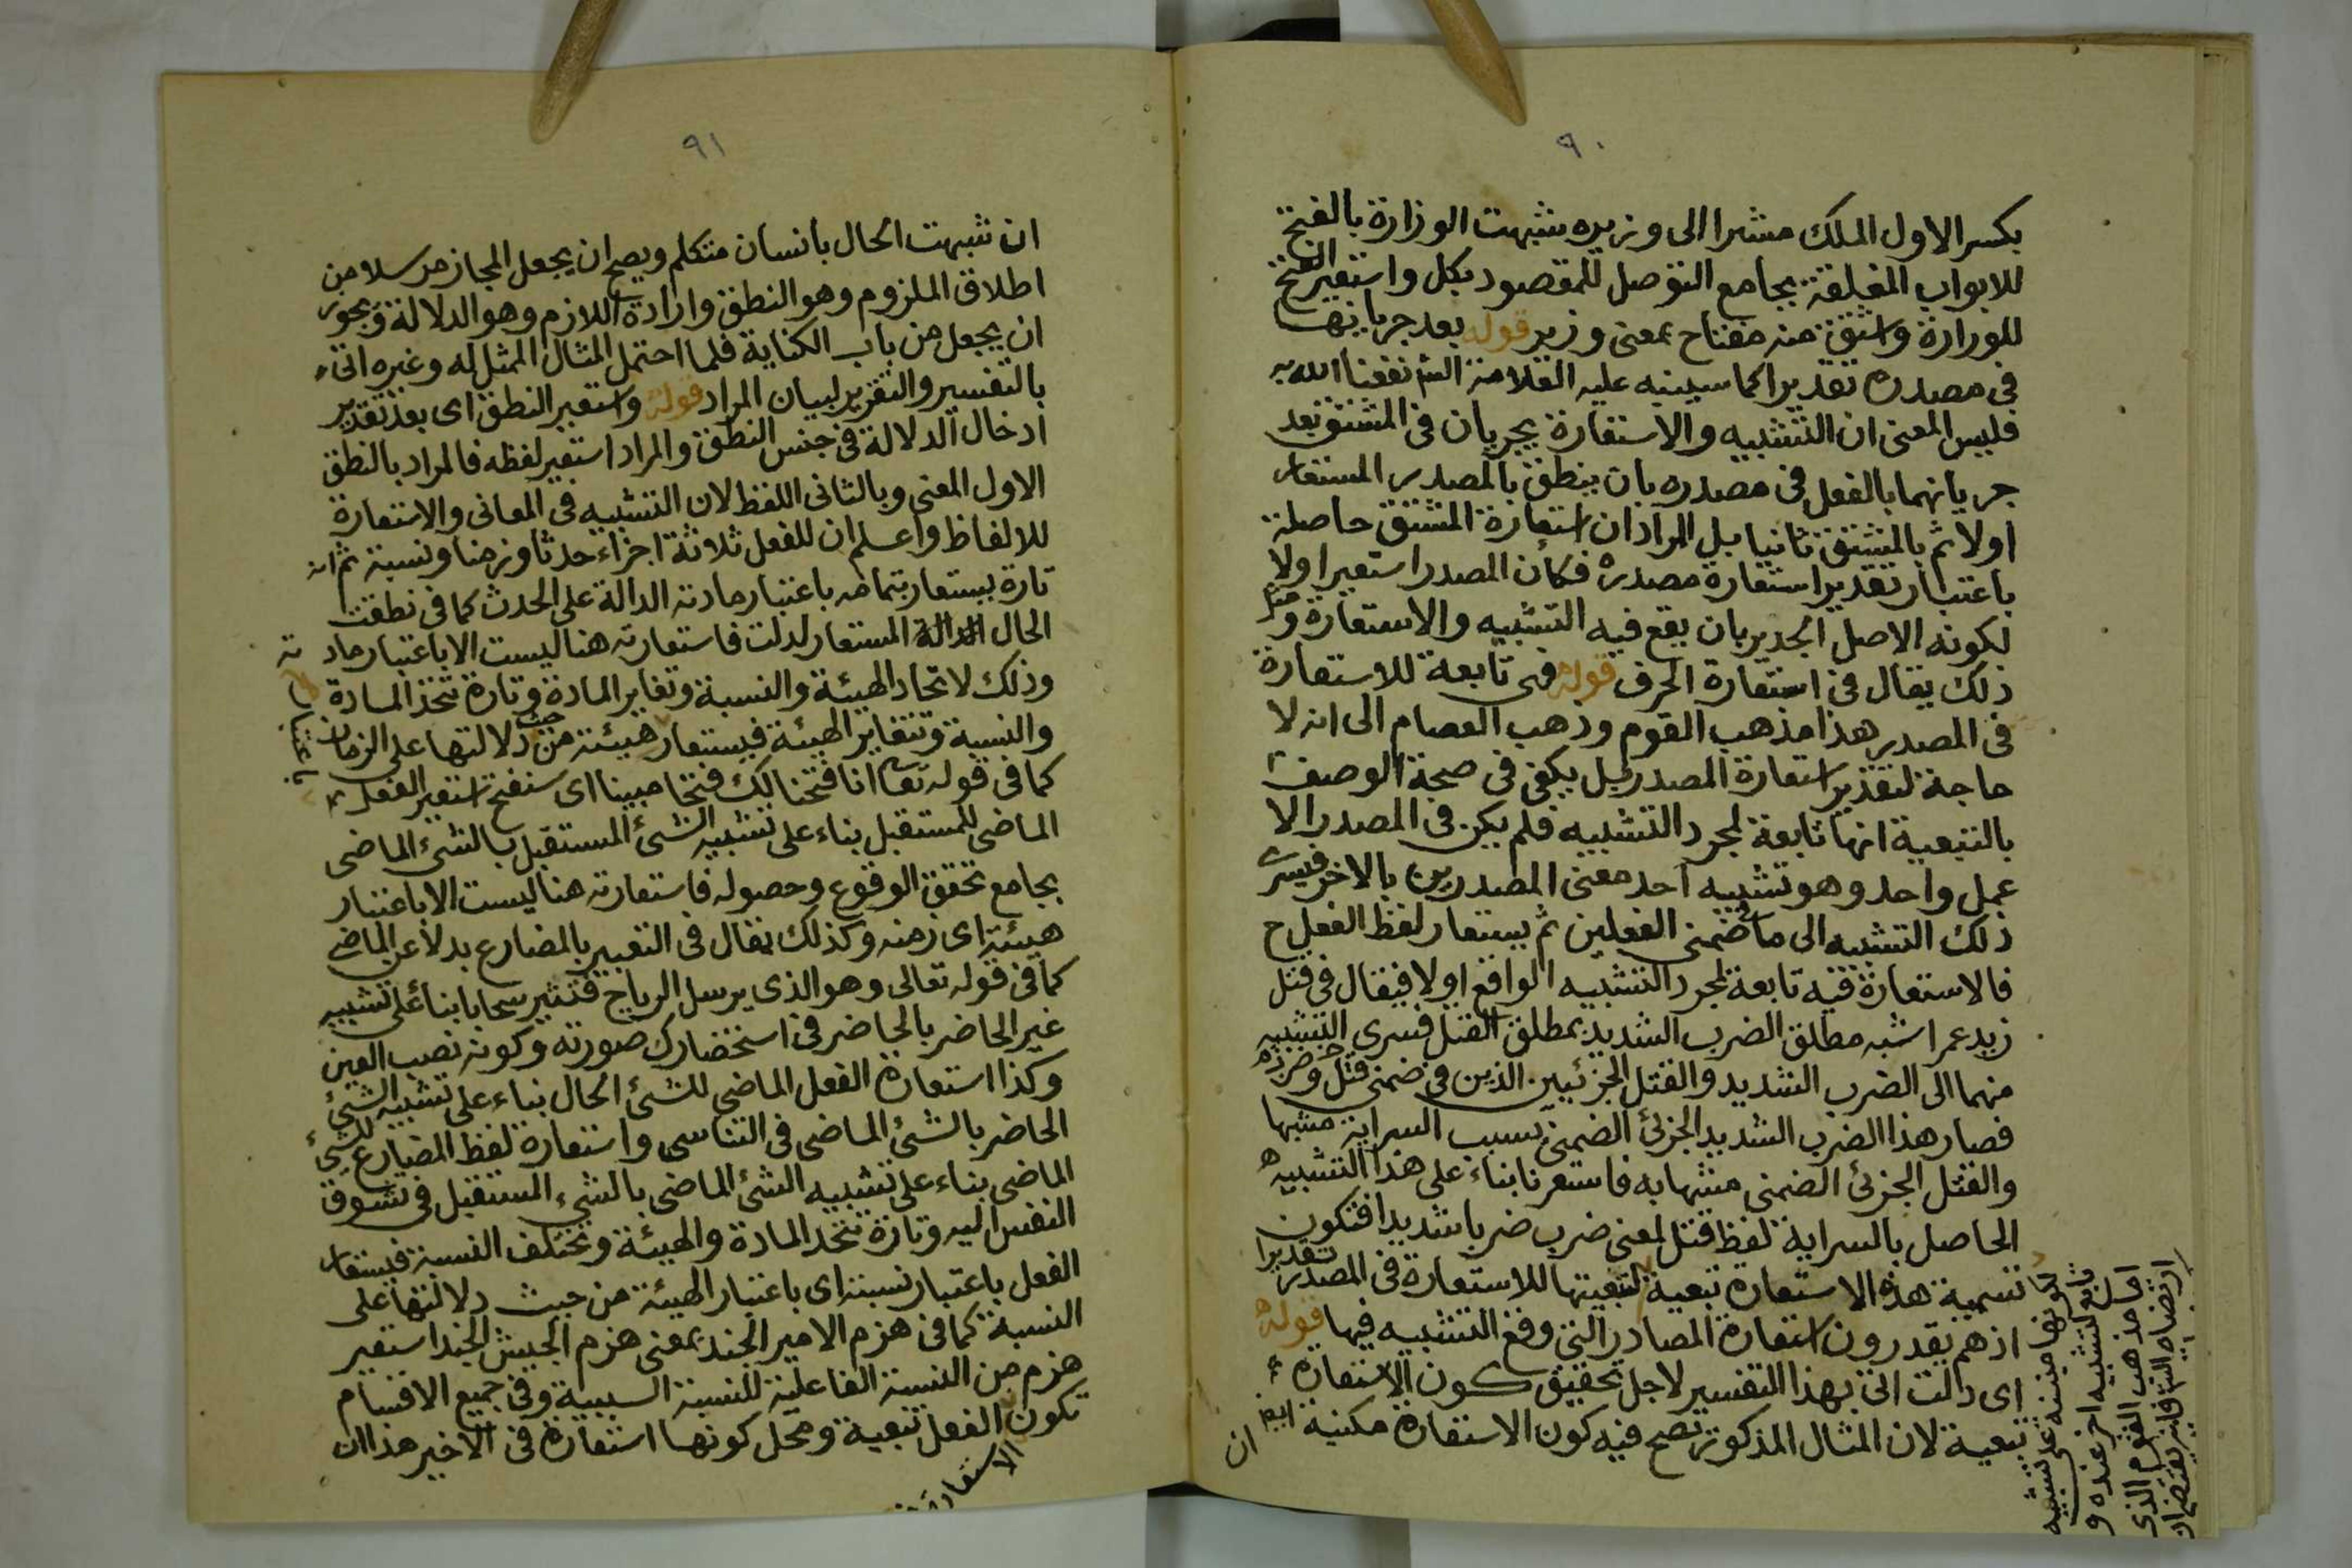 ٩٠
بكسر الاول الملك مشيرا الى وزيره شبهت الوزارة بالفتح
للابواب المغلقة بجامع التوصل للمقصود بكل واستعير الفتح
للوزارة واشتق منه مفتاح بمعنى وزير قوله بعد جريانها
فى مصدره تقديرا كما سينبه عليه العلامة الش نفعنا الله به
فليس المعنى ان التشبيه والاستعارة يجريان فى المشتق بعد
جريانهما بالفعل فى مصدره بان ينطق بالمصدر المستعار
اولا ثم بالمشتق ثانيا بل المراد ان استعارة المشتق حاصلة
باعتبار تقدير استعارة مصدره فكأن المصدر استعير اولا
لكونه الاصل الجدير بان يقع فيه التشبيه والاستعارة ومثل
ذلك يقال فى استعارة الحرف قوله فهى تابعة للاستعارة
فى المصدر هذا مذهب القوم وذهب العصام الى انه لا
حاجة لتقدير استعارة المصدر بل يكفى فى صحة الوصف
بالتبعية انها تابعة لمجرد التشبيه فلم يكن فى المصدر الا
عمل واحد وهو تشبيه احد معنى المصدرين بالاخر فيسرى
ذلك التشبيه الى ما فى ضمنى الفعلين ثم يستعار لفظ الفعل ح
فالاستعارة فيه تابعة لمجرد التشبيه الواقع اولا فيقال فى قتل
زيد عمرا شبه مطلق الضرب الشديد بمطلق القتل فسرى التشبيه
منهما الى الضرب الشديد والقتل الجزئيين الذين فى ضمنى قتل وضرب
فصار هذا الضرب الشديد الجزئى الضمنى بسبب السراية مشبها
والقتل الجزئى الضمنى مشبها به فاستعرنا بناء على هذا التشبيه
الحاصل بالسراية لفظ قتل لمعنى ضرب ضربا شديدا فتكون
تسمية هذه الاستعارة تبعية لتبعيتها للاستعارة فى المصدر تقديرا
اذ هم يقدرون استعارة المصادر التى وقع التشبيه فيها قوله
اى دالت اتى بهذا التفسير لاجل تحقيق كون الاستعارة
تبعية لان المثال المذكور تصح فيه كون الاستعارة مكنية ايضا
ان
لكونها مبنية على تشبيه
تابع لتشبيه اخر عنده و
اصل مذهب القوم الذى
ارتضاه
٩١
ان شبهت الحال بانسان متكلم ويصح ان يجعل المجاز مرسلا من
اطلاق الملزوم وهو النطق وارادة اللازم وهو الدلالة ويجوز
ان يجعل من باب الكناية فلما احتمل المثال الممثل له وغيره اتى
بالتفسير والتقرير لبيان المراد قوله واستعير النطق اى بعد تقدير
ادخال الدلالة فى جنس النطق والمراد استعير لفظه فالمراد بالنطق
الاول المعنى وبالثانى اللفظ لان التشبيه فى المعانى والاستعارة
للالفاظ واعلم ان للفعل ثلاثة اجزاء حدثا وزمنا ونسبة ثم انه
تارة يستعار بتمامه باعتبار مادته الدالة على الحدث كما فى نطقت
الحال الدالة المستعار لدلت فاستعارته هنا ليست الا باعتبار مادته
وذلك لاتحاد الهيئة والنسبة وتغاير المادة وتارة تتحد المادة
والنسبة وتتغاير الهيئة فيستعار هيئته من حيث دلالتها على الزمان
باعتبار
كما فى قوله تعا انا فتحنا لك فتحا مبينا اى سنفتح استعير الفعل
الماضى للمستقبل بناء على تشبيه الشئ المستقبل بالشئ الماضى
بجامع تحقق الوقوع وحصوله فاستعارته هنا ليست الا باعتبار
هيئته اى زمنه وكذلك نقال فى التعبير بالمضارع بدلا عن الماضى
كما فى قوله تعالى وهو الذى يرسل الرياح فتثير سحابا بناء على تشبيه
غير الحاضر بالحاضر فى استحضارك صورته وكونه نصب العين
وكذا استعارة الفعل الماضى للشئ الحال بناء على تشبيه الشئ
الحاضر بالشئ الماضى فى التناسى واستعارة لفظ المضارع للشئ
الماضى بناء على تشبيه الشئ الماضى بالشئ المستقبل فى تشوق
النفس اليه وتارة تتحد المادة والهيئة وتختلف النسبة فيستعار
الفعل باعتبار نسبته اى باعتبار الهيئة من حيث دلالتها على
النسبة كما فى هزم الامير الجند بمعنى هزم الجيش الجند استعير
هزم من النسبة الفاعلية للنسبة السببية وفى جميع الاقسام
تكون الفعل تبعية ومحل كونها استعارة فى الاخير هذا ان
الاستعارة